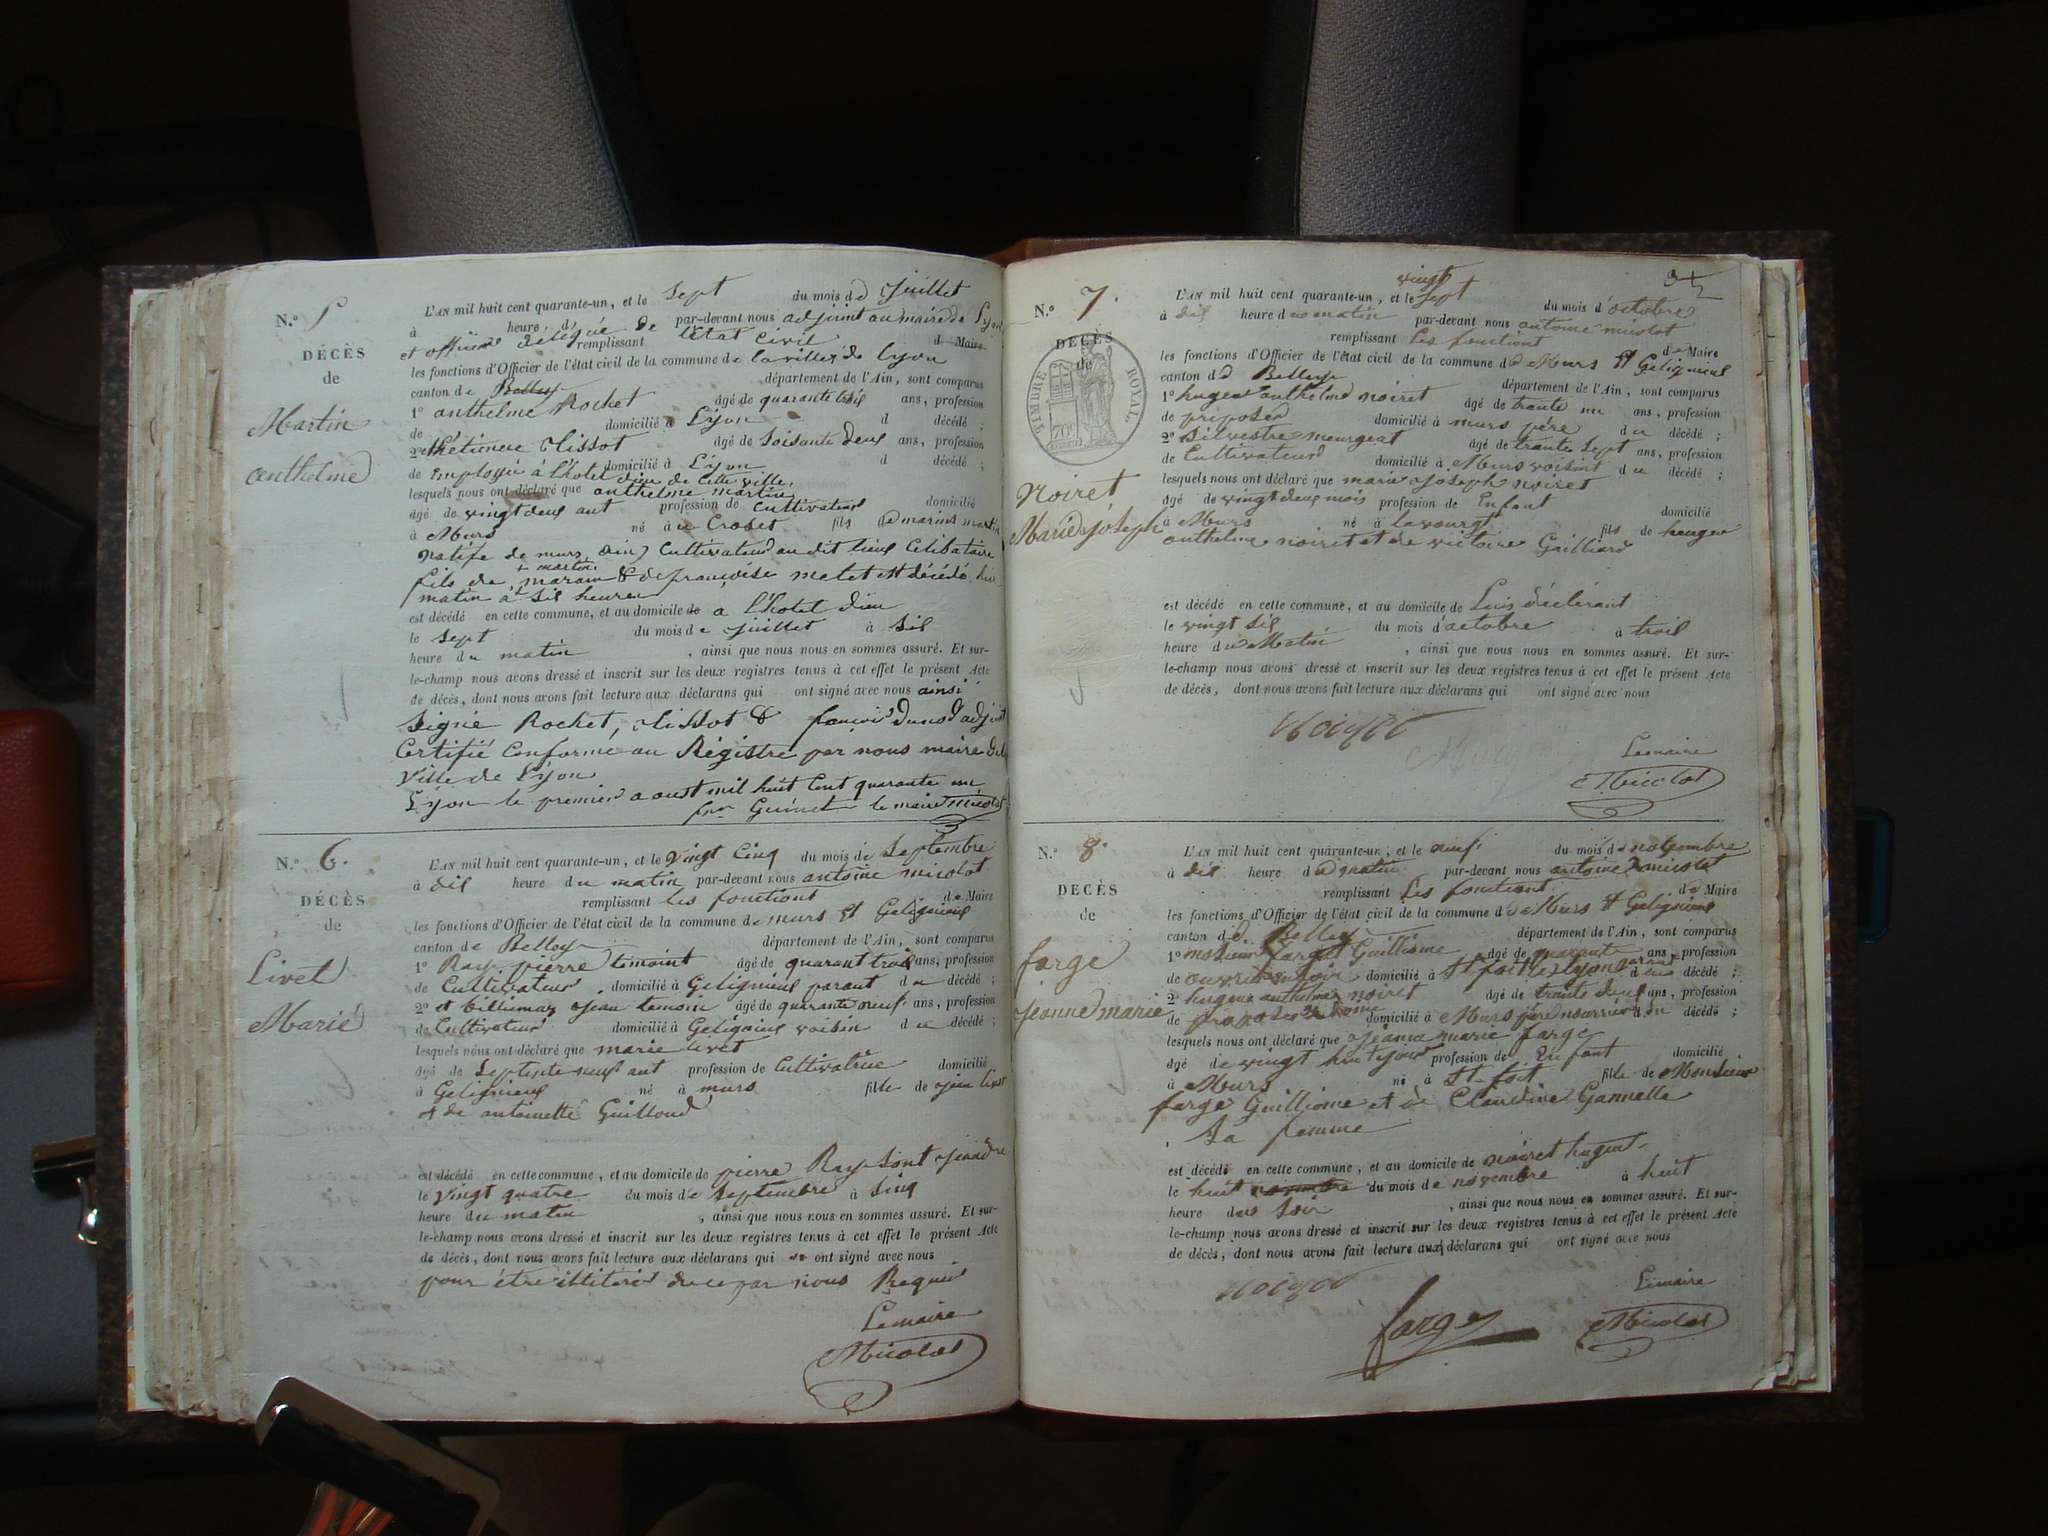 N.º 5
DÉCÈS
de
Martin
anthelme
L'AN mil huit cent quarante-un, et le sept du mois de juillet
à heure d par-devant nous adjoint au maire de Lyon
et officier délégué de remplissant l'état civil d Maire
les fonctions d'Officier de l'état civil de la commune de la ville de lyon
canton de Belley département de l'Ain, sont comparus
1º anthelme Rochet âgé de quarante trois ans, profession
de domicilié à Lyon d décédé ;
2º thetienne Clissot âgé de soisante deux ans, profession
de Employé à l'hotel domicilié à Lyon d décédé ;
dieu de cette ville,
lesquels nous ont déclaré que anthelme martin
âgé de vingt deux ant profession de cultivateur domicilié
à Murs né à le Croset fils de marins martin
natife de murs, ain, Cultivateur au dit lieux Celibataire
+ martin
fils de maram & de françoise metet est décédé hier
matin à six heures
est décédé en cette commune, et au domicile de a l'hotel dieu
le sept du mois de juillet à six
heure du matin, ainsi que nous nous en sommes assuré. Et sur-
le-champ nous avons dressé et inscrit sur les deux registres tenus à cet effet le présent Acte
de décès, dont nous avons fait lecture aux déclarans qui ont signé avec nous ainsi
Signé Rochet, Clissot & adjoint
Certifié Conforme au Régistre par nous maire de la
Ville de Lyon
Lyon le premier aoust mil huit cent quarante un
Guinet le maire Micolot
N.º 6.
DÉCÈS
de
Livet
Marie
L'AN mil huit cent quarante-un, et le vingt cinq du mois de septembre
à dix heure du matin par-devant nous antoine micolot
remplissant les fonctions de Maire
les fonctions d'Officier de l'état civil de la commune de murs et Gelignieux
canton de Belley département de l'Ain, sont comparus
1º Ray pierre temoint âgé de quarant trois ans, profession
de Cultivateur domicilié à Gelignieux parant du décédé ;
2º et billiemaz jean temoin âgé de quarante neuf ans, profession
de Cultivateur domicilié à Gelignieux voisin du décédé ;
lesquels nous ont déclaré que marie livet
âgé de septente neuf ant profession de Cultivatrice domicilié
à Gelignieux né à murs fille de jean livet
et de antoinette Guilloud
est décédé en cette commune, et au domicile de pierre Ray sont gendre
le vingt quatre du mois de septembre à sinq
heure du matin, ainsi que nous nous en sommes assuré. Et sur-
le-champ nous avons dressé et inscrit sur les deux registres tenus à cet effet le présent Acte
de décès, dont nous avons fait lecture aux déclarans qui ont signé avec nous
pour être de ce par nous Requis
Lemaire
Micolot
N.º 7.
DÉCÈS
de
TIMBRE ROYAL
70
Noiret
Marie joseph
vingt
L'AN mil huit cent quarante-un, et le sept du mois d'octobre
à dix heure du matin par-devant nous antoine micolot
remplissant les fonctiont de Maire
les fonctions d'Officier de l'état civil de la commune de Murs et Gelignieux
canton de Belley département de l'Ain, sont comparus
1º hugene anthelme noiret âgé de trante un ans, profession
de préposer domicilié à murs père du décédé ;
2º silvestre meurgeat âgé de trante sept ans, profession
de Cultivateur domicilié à Murs voisint du décédé ;
lesquels nous ont déclaré que marie joseph noiret
âgé de vingt deux mois profession de Enfant domicilié
à Murs né à lavourgt fils de heugene
anthelme noiret et de victoire Gailliard
est décédé en cette commune, et au domicile de Luis déclérant
le vingt six du mois d'octobre à trois
heure du Matin, ainsi que nous nous en sommes assuré. Et sur-
le-champ nous avons dressé et inscrit sur les deux registres tenus à cet effet le présent Acte
de décès, dont nous avons fait lecture aux déclarans qui ont signé avec nous
Noiret
Lemaire
Micolot
N.º 8.
DÉCÈS
de
farge
jeanne marie
L'AN mil huit cent quarante-un, et le neuf du mois de novembre
à dix heure du matin par-devant nous antoine micolot
remplissant les fonctiont de Maire
les fonctions d'Officier de l'état civil de la commune de Murs et Gelignieux
canton de Belley département de l'Ain, sont comparus
1º mosieur farget Guilliome âgé de quarante ans, profession
de domicilié à St foit les lyon du décédé ;
2º hugene anthelme noiret âgé de trante deux ans, profession
de preposer domicilié à Murs père nourricier du décédé ;
lesquels nous ont déclaré que jeanne marie farge
âgé de vingt huit jour profession de Enfant domicilié
à Murs né à St foit fille de Monsieur
farge Guilliome et de Claudine Gannelle
sa femme
est décédé en cette commune, et au domicile de noiret hugene
le huit novembre du mois de novembre à huit
heure du soir, ainsi que nous nous en sommes assuré. Et sur-
le-champ nous avons dressé et inscrit sur les deux registres tenus à cet effet le présent Acte
de décès, dont nous avons fait lecture aux déclarans qui ont signé avec nous
Noiret
farge
Lemaire
Micolot